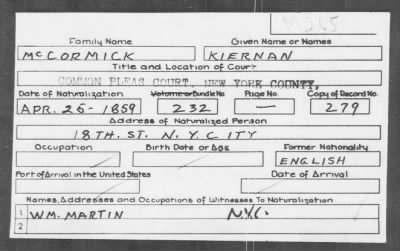 Family Name Given Name or Names
McCORMICK KIERNAN
Title and Location of Court
COMMON PLEAS COURT, NEW YORK COUNTY.
Date of Naturalization Volume or Bundle No. Page No. Copy of Record No.
APR. 25-1859 232 — 279
Address of Naturalized Person
18TH. ST. N.Y. CITY
Occupation Birth Date or Age Former Nationality
ENGLISH
Port of Arrival in the United States Date of Arrival
Names, Addresses and Occupations of Witnesses To Naturalization
1 WM. MARTIN N.Y.C.
2